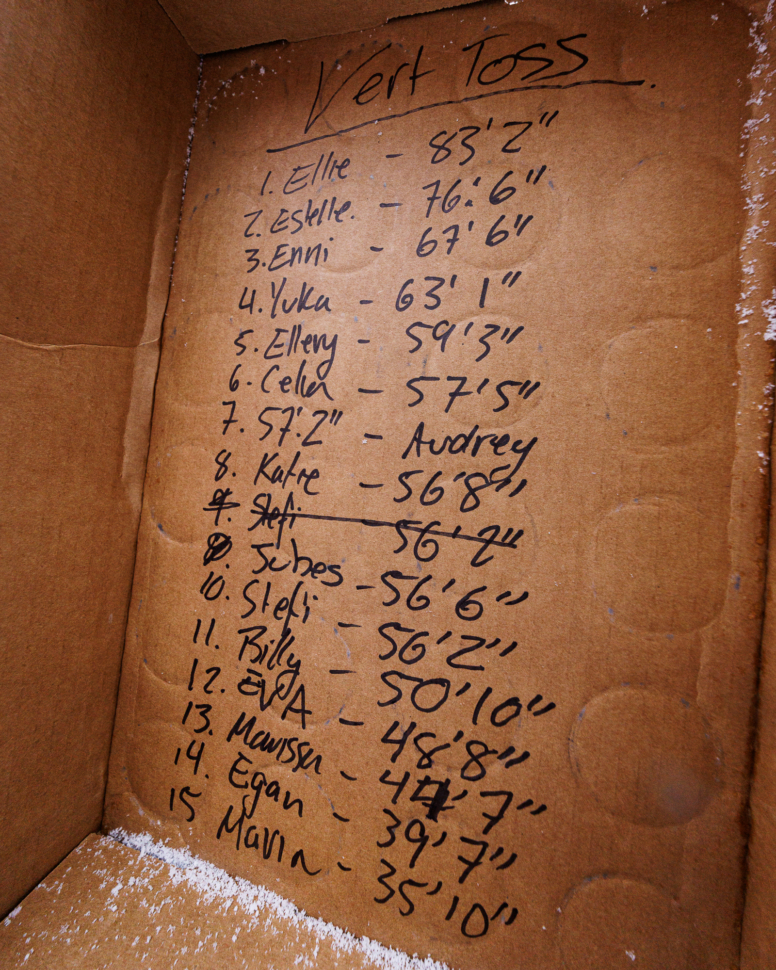 Vert Toss
1. Ellie - 83'2"
2. Estelle. - 76'6"
3. Enni - 67'6"
4. Yuka - 63'1"
5. Ellery - 59'3"
6. Celia - 57'5"
7. 57'2" - Audrey
8. Katie - 56'8"
9. Stefi - 56'2"
9. Jubes - 56'6"
10. Stefi - 56'2"
11. Billy - 50'10"
12. EVA - 48'8"
13. Marissa - 44'7"
14. Egan - 39'7"
15 Mavin - 35'10"